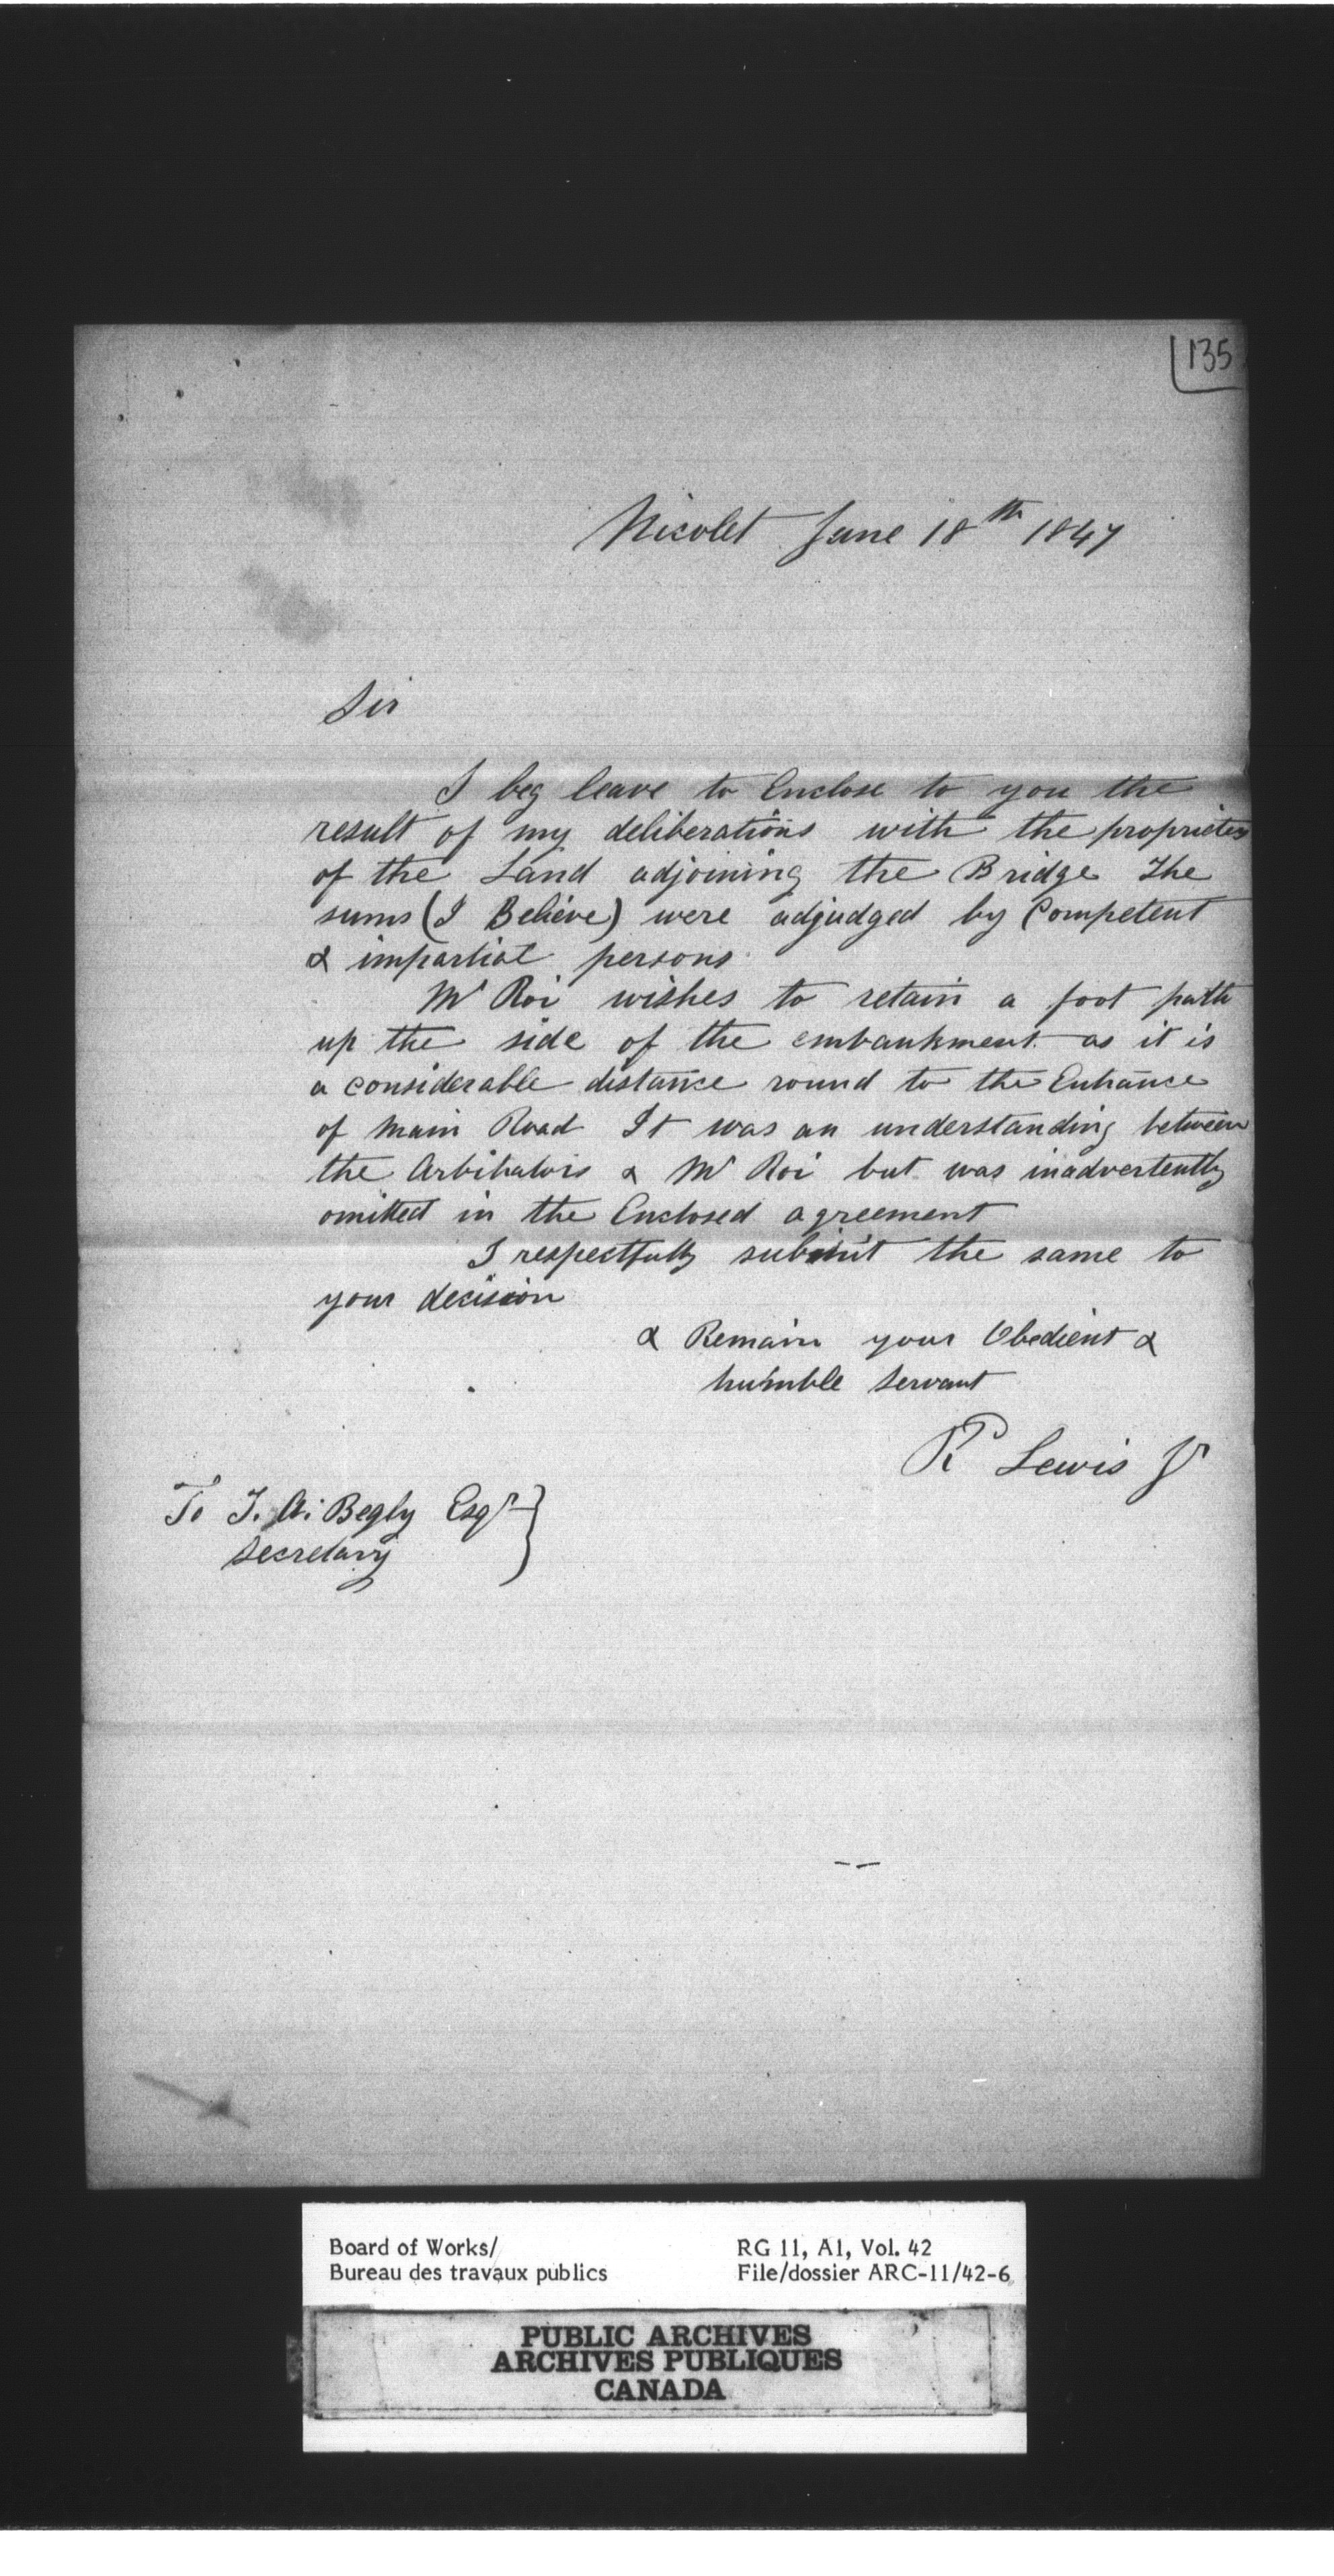 135
Nicolet June 18th 1847
Sir
I beg leave to Enclose to you the
result of my deliberations with the proprietors
of the Land adjoining the Bridge The
sums (I Believe) were adjudged by Competent
& impartial persons
Mr Roi wishes to retain a foot path
up the side of the embankment as it is
a considerable distance round to the Entrance
of Main Road It was an understanding between
the Arbitrators & Mr Roi but was inadvertently
omitted in the Enclosed agreement
I respectfully submit the same to
your decision
& Remain your Obedient &
humble Servant
R Lewis Jr
To T. A. Begly Esqr
Secretary
Board of Works/
Bureau des travaux publics
RG 11, A1, Vol. 42
File/dossier ARC-11/42-6
PUBLIC ARCHIVES
ARCHIVES PUBLIQUES
CANADA